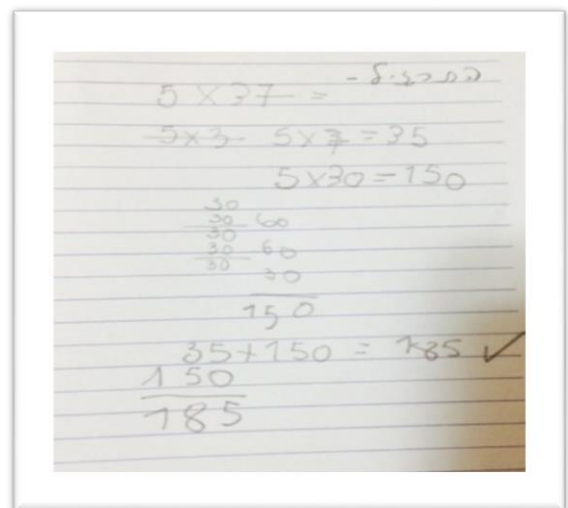 התרגיל -
5 × 37 =
5×3 5×7 = 35
5×30 = 150
30
30 60
30
30 60
30 30
150
35+150 = 185 ✓
150
185